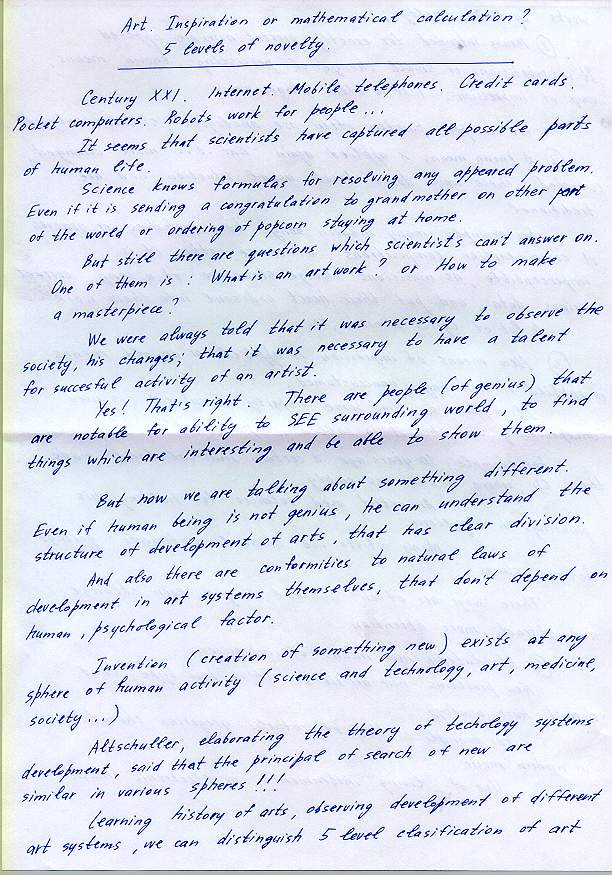 Art. Inspiration or mathematical calculation?
5 levels of novelty.
Century XXI. Internet. Mobile telephones. Credit cards.
Pocket computers. Robots work for people...
It seems that scientists have captured all possible parts
of human life.
Science knows formulas for resolving any appeared problem.
Even if it is sending a congratulation to grandmother on other part
of the world or ordering of popcorn staying at home.
But still there are questions which scientists can't answer on.
One of them is: What is an art work? or How to make
a masterpiece?
We were always told that it was necessary to observe the
society, his changes; that it was necessary to have a talent
for succesful activity of an artist.
Yes! That's right. There are people (of genius) that
are notable for ability to SEE surrounding world, to find
things which are interesting and be able to show them.
But now we are talking about something different.
Even if human being is not genius, he can understand the
structure of development of arts, that has clear division.
And also there are conformities to natural laws of
development in art systems themselves, that don't depend on
human, psychological factor.
Invention (creation of something new) exists at any
sphere of human activity (science and technology, art, medicine,
society...)
Altschuller, elaborating the theory of techology systems
development, said that the principal of search of new are
similar in various spheres!!!
Learning history of arts, observing development of different
art systems, we can distinguish 5 level clasification of art